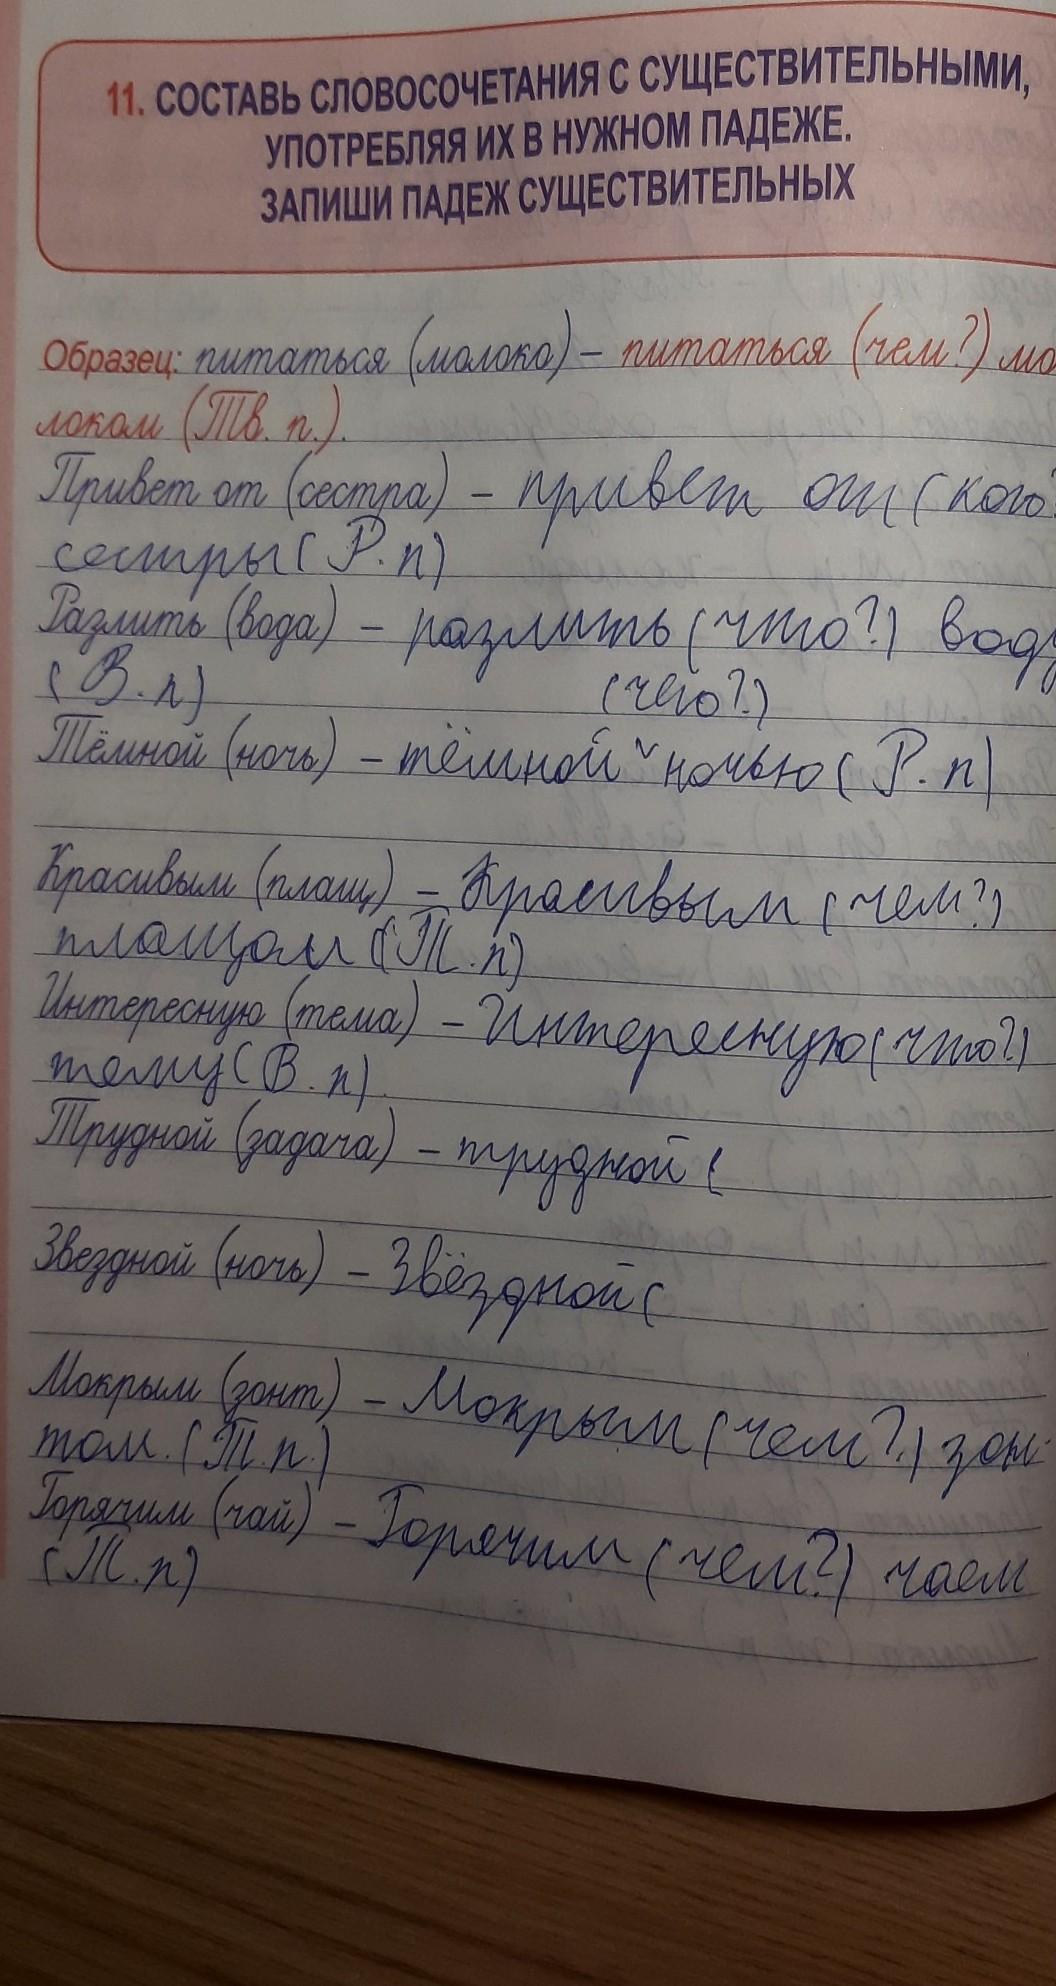 11. СОСТАВЬ СЛОВОСОЧЕТАНИЯ С СУЩЕСТВИТЕЛЬНЫМИ,
УПОТРЕБЛЯЯ ИХ В НУЖНОМ ПАДЕЖЕ.
ЗАПИШИ ПАДЕЖ СУЩЕСТВИТЕЛЬНЫХ
Образец: питаться (молоко) – питаться (чем?) мо
локом (Тв. п.).
Привет от (сестра) – привет от (кого?
сестры (Р. п)
Разлить (вода) – разлить (что?) воду
(В. п)
(чего?)
Тёмной (ночь) – тёмной ˅ ночью (Р. п)
Красивым (плащ) – Красивым (чем?)
плащом (Т. п)
Интересную (тема) – Интересную (что?)
тему (В. п)
Трудной (задача) – трудной (
Звездной (ночь) – Звёздной (
Мокрым (зонт) – Мокрым (чем?) зон-
том. (Т. п.)
Горячим (чай) – Горячим (чем?) чаем
(Т. п)